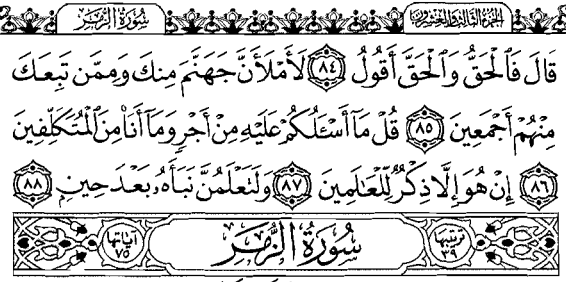 الجزء الثالث والعشرون سورة الزمر
قَالَ فَٱلْحَقُّ وَٱلْحَقَّ أَقُولُ ﴿٨٤﴾ لَأَمْلَأَنَّ جَهَنَّمَ مِنكَ وَمِمَّن تَبِعَكَ
مِنْهُمْ أَجْمَعِينَ ﴿٨٥﴾ قُلْ مَآ أَسْـَٔلُكُمْ عَلَيْهِ مِنْ أَجْرٍ وَمَآ أَنَا۠ مِنَ ٱلْمُتَكَلِّفِينَ
﴿٨٦﴾ إِنْ هُوَ إِلَّا ذِكْرٌ لِّلْعَـٰلَمِينَ ﴿٨٧﴾ وَلَتَعْلَمُنَّ نَبَأَهُۥ بَعْدَ حِينٍ ﴿٨٨﴾
ترتيبها ٣٩ سُورَةُ الزُّمَرِ آياتها ٧٥